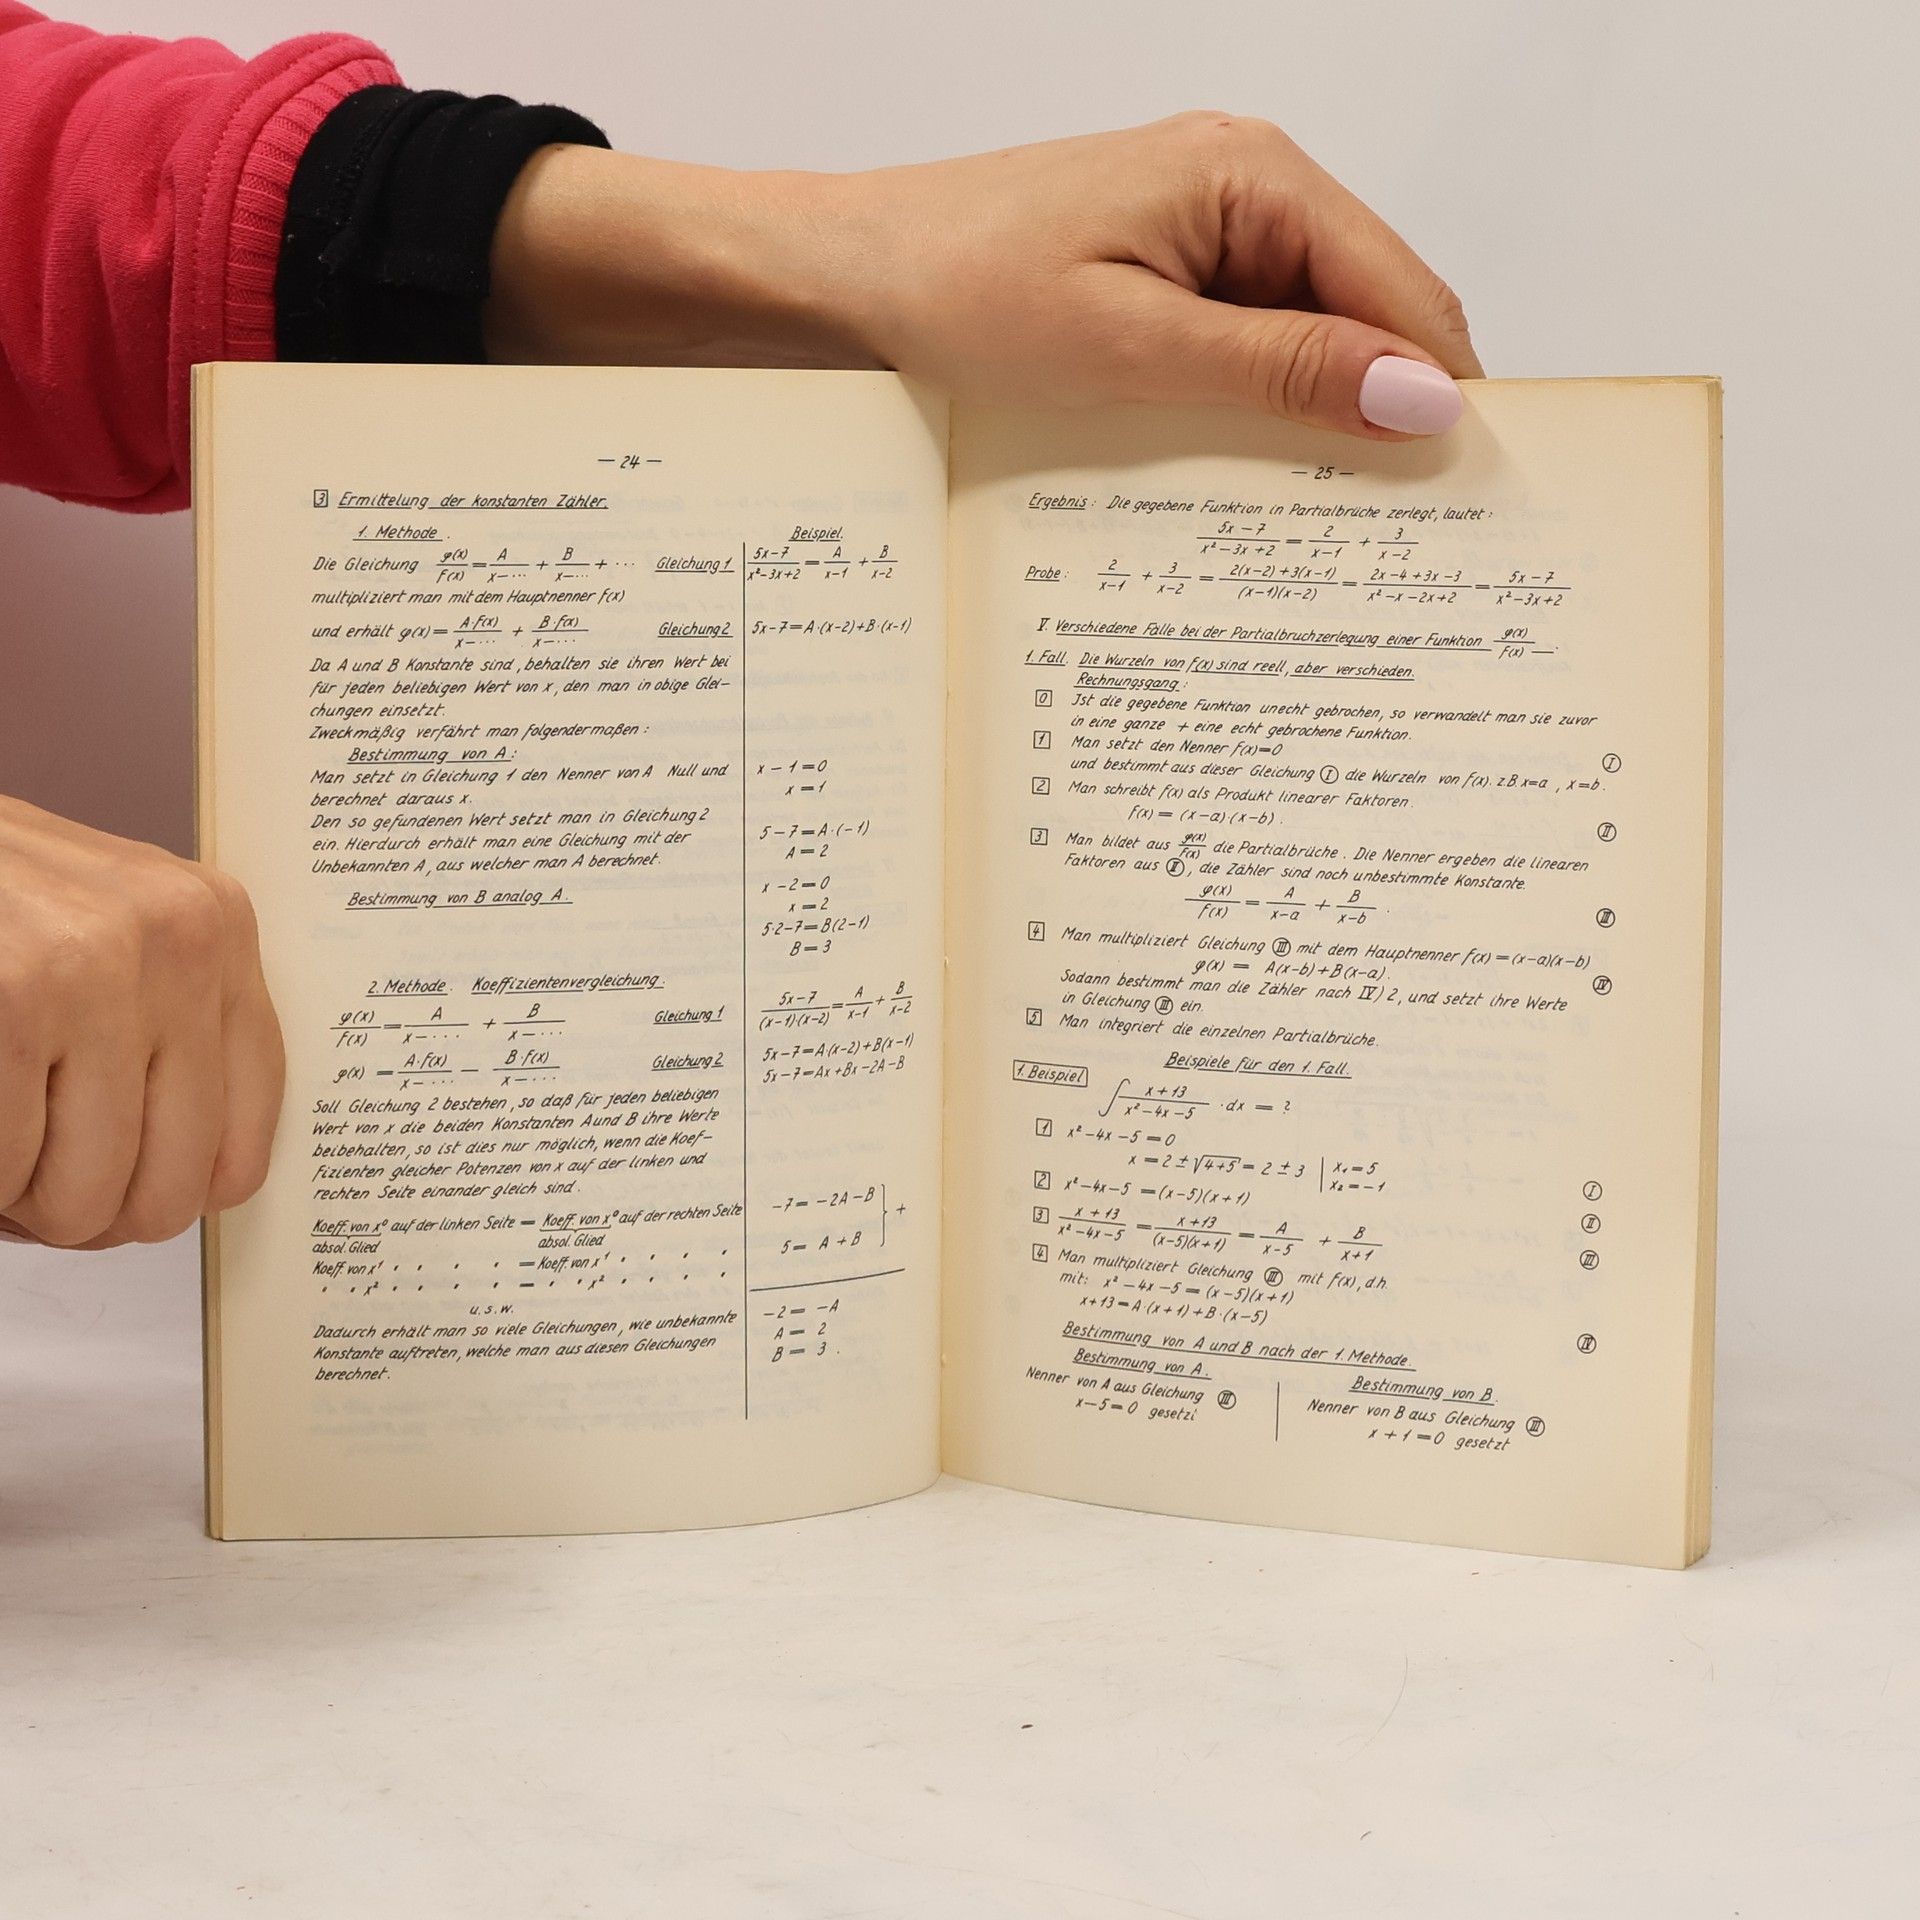 — 24 —
3 Ermittelung der konstanten Zähler.
1. Methode. Beispiel.
Die Gleichung φ(x)/f(x) = A/(x-···) + B/(x-···) + ··· Gleichung 1 (5x-7)/(x²-3x+2) = A/(x-1) + B/(x-2)
multipliziert man mit dem Hauptnenner f(x)
und erhält φ(x) = A·f(x)/(x-···) + B·f(x)/(x-···) Gleichung 2 5x-7=A·(x-2)+B·(x-1)
Da A und B Konstante sind, behalten sie ihren Wert bei
für jeden beliebigen Wert von x, den man in obige Glei-
chungen einsetzt.
Zweckmäßig verfährt man folgendermaßen:
Bestimmung von A:
Man setzt in Gleichung 1 den Nenner von A Null und x - 1 = 0
berechnet daraus x. x = 1
Den so gefundenen Wert setzt man in Gleichung 2
ein. Hierdurch erhält man eine Gleichung mit der 5 - 7 = A·(-1)
Unbekannten A, aus welcher man A berechnet. A = 2
x - 2 = 0
Bestimmung von B analog A. x = 2
5·2-7=B(2-1)
B = 3
2. Methode. Koeffizientenvergleichung.
φ(x)/f(x) = A/(x-···) + B/(x-···) Gleichung 1 (5x-7)/((x-1)·(x-2)) = A/(x-1) + B/(x-2)
φ(x) = A·f(x)/(x-···) - B·f(x)/(x-···) Gleichung 2 5x-7=A·(x-2)+B(x-1)
5x-7=Ax+Bx-2A-B
Soll Gleichung 2 bestehen, so daß für jeden beliebigen
Wert von x die beiden Konstanten A und B ihre Werte
beibehalten, so ist dies nur möglich, wenn die Koef-
fizienten gleicher Potenzen von x auf der linken und
rechten Seite einander gleich sind.
Koeff. von x⁰ auf der linken Seite = Koeff. von x⁰ auf der rechten Seite -7 = -2A-B } +
absol. Glied absol. Glied 5 = A + B
Koeff. von x¹ ' ' ' ' = Koeff. von x¹ ' ' ' '
' ' x² ' ' ' ' = ' ' x² ' ' ' '
u.s.w. -2 = -A
Dadurch erhält man so viele Gleichungen, wie unbekannte A = 2
Konstante auftreten, welche man aus diesen Gleichungen B = 3.
berechnet.
— 25 —
Ergebnis: Die gegebene Funktion in Partialbrüche zerlegt, lautet:
(5x-7)/(x²-3x+2) = 2/(x-1) + 3/(x-2)
Probe: 2/(x-1) + 3/(x-2) = (2(x-2)+3(x-1))/((x-1)(x-2)) = (2x-4+3x-3)/(x²-x-2x+2) = (5x-7)/(x²-3x+2)
V. Verschiedene Fälle bei der Partialbruchzerlegung einer Funktion φ(x)/f(x).
1. Fall. Die Wurzeln von f(x) sind reell, aber verschieden.
Rechnungsgang:
0 Ist die gegebene Funktion unecht gebrochen, so verwandelt man sie zuvor
in eine ganze + eine echt gebrochene Funktion.
1 Man setzt den Nenner f(x)=0 I
und bestimmt aus dieser Gleichung I die Wurzeln von f(x). z.B. x=a, x=b.
2 Man schreibt f(x) als Produkt linearer Faktoren.
f(x) = (x-a)·(x-b). II
3 Man bildet aus φ(x)/f(x) die Partialbrüche. Die Nenner ergeben die linearen
Faktoren aus II, die Zähler sind noch unbestimmte Konstante.
φ(x)/f(x) = A/(x-a) + B/(x-b). III
4 Man multipliziert Gleichung III mit dem Hauptnenner f(x)=(x-a)(x-b)
φ(x) = A(x-b)+B(x-a). IV
Sodann bestimmt man die Zähler nach IV) 2, und setzt ihre Werte
in Gleichung III ein.
5 Man integriert die einzelnen Partialbrüche.
Beispiele für den 1. Fall.
1. Beispiel
∫ (x+13)/(x²-4x-5) · dx = ?
1 x²-4x-5=0
x = 2 ± √4+5 = 2 ± 3 | x₁ = 5
x₂ = -1 I
2 x²-4x-5 = (x-5)(x+1) II
3 (x+13)/(x²-4x-5) = (x+13)/((x-5)(x+1)) = A/(x-5) + B/(x+1) III
4 Man multipliziert Gleichung III mit f(x), d.h.
mit: x²-4x-5 = (x-5)(x+1)
x+13 = A·(x+1)+B·(x-5) IV
Bestimmung von A und B nach der 1. Methode.
Bestimmung von A.
Nenner von A aus Gleichung III
x-5=0 gesetzt
Bestimmung von B.
Nenner von B aus Gleichung III
x+1=0 gesetzt